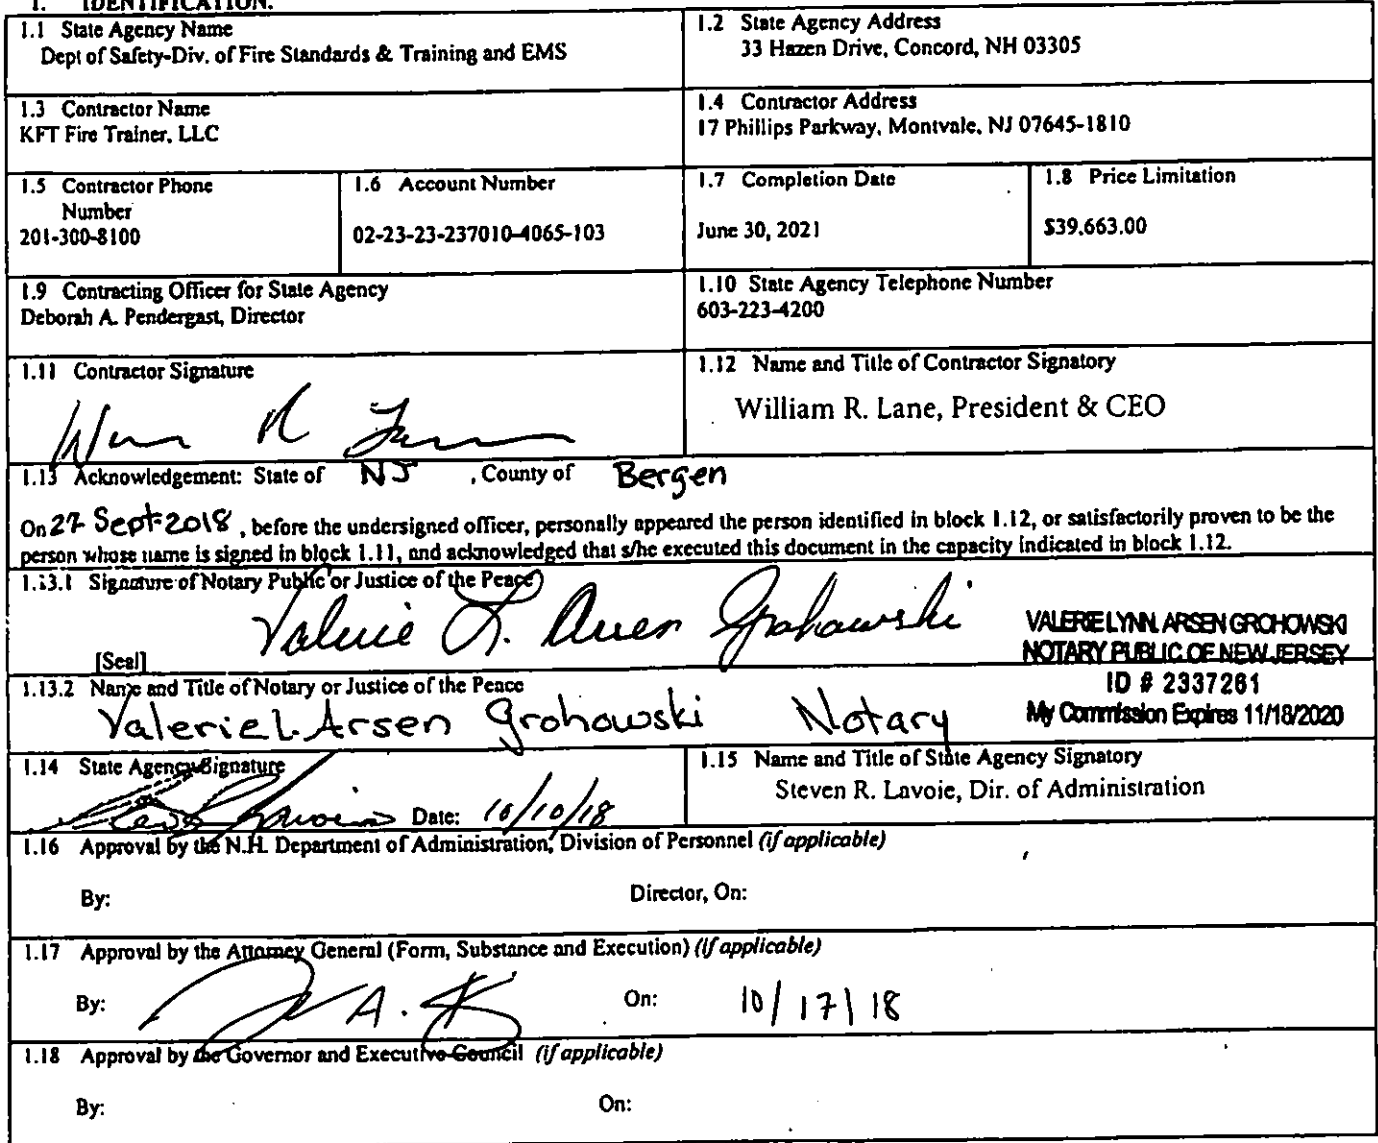 1. IDENTIFICATION.
1.1 State Agency Name
Dept of Safety-Div. of Fire Standards & Training and EMS
1.2 State Agency Address
33 Hazen Drive, Concord, NH 03305
1.3 Contractor Name
KFT Fire Trainer, LLC
1.4 Contractor Address
17 Phillips Parkway, Montvale, NJ 07645-1810
1.5 Contractor Phone
Number
201-300-8100
1.6 Account Number
02-23-23-237010-4065-103
1.7 Completion Date
June 30, 2021
1.8 Price Limitation
$39,663.00
1.9 Contracting Officer for State Agency
Deborah A. Pendergast, Director
1.10 State Agency Telephone Number
603-223-4200
1.11 Contractor Signature
1.12 Name and Title of Contractor Signatory
William R. Lane, President & CEO
1.13 Acknowledgement: State of NJ , County of Bergen
On 27 Sept 2018 , before the undersigned officer, personally appeared the person identified in block 1.12, or satisfactorily proven to be the
person whose name is signed in block 1.11, and acknowledged that s/he executed this document in the capacity indicated in block 1.12.
1.13.1 Signature of Notary Public or Justice of the Peace
Valerie L. Arsen Grohowski
[Seal]
VALERIE LYNN ARSEN GROHOWSKI
NOTARY PUBLIC OF NEW JERSEY
ID # 2337261
My Commission Expires 11/18/2020
1.13.2 Name and Title of Notary or Justice of the Peace
Valerie L. Arsen Grohowski Notary
1.14 State Agency Signature
Date: 10/10/18
1.15 Name and Title of State Agency Signatory
Steven R. Lavoie, Dir. of Administration
1.16 Approval by the N.H. Department of Administration, Division of Personnel (if applicable)
By: Director, On:
1.17 Approval by the Attorney General (Form, Substance and Execution) (if applicable)
By: On: 10/17/18
1.18 Approval by the Governor and Executive Council (if applicable)
By: On: